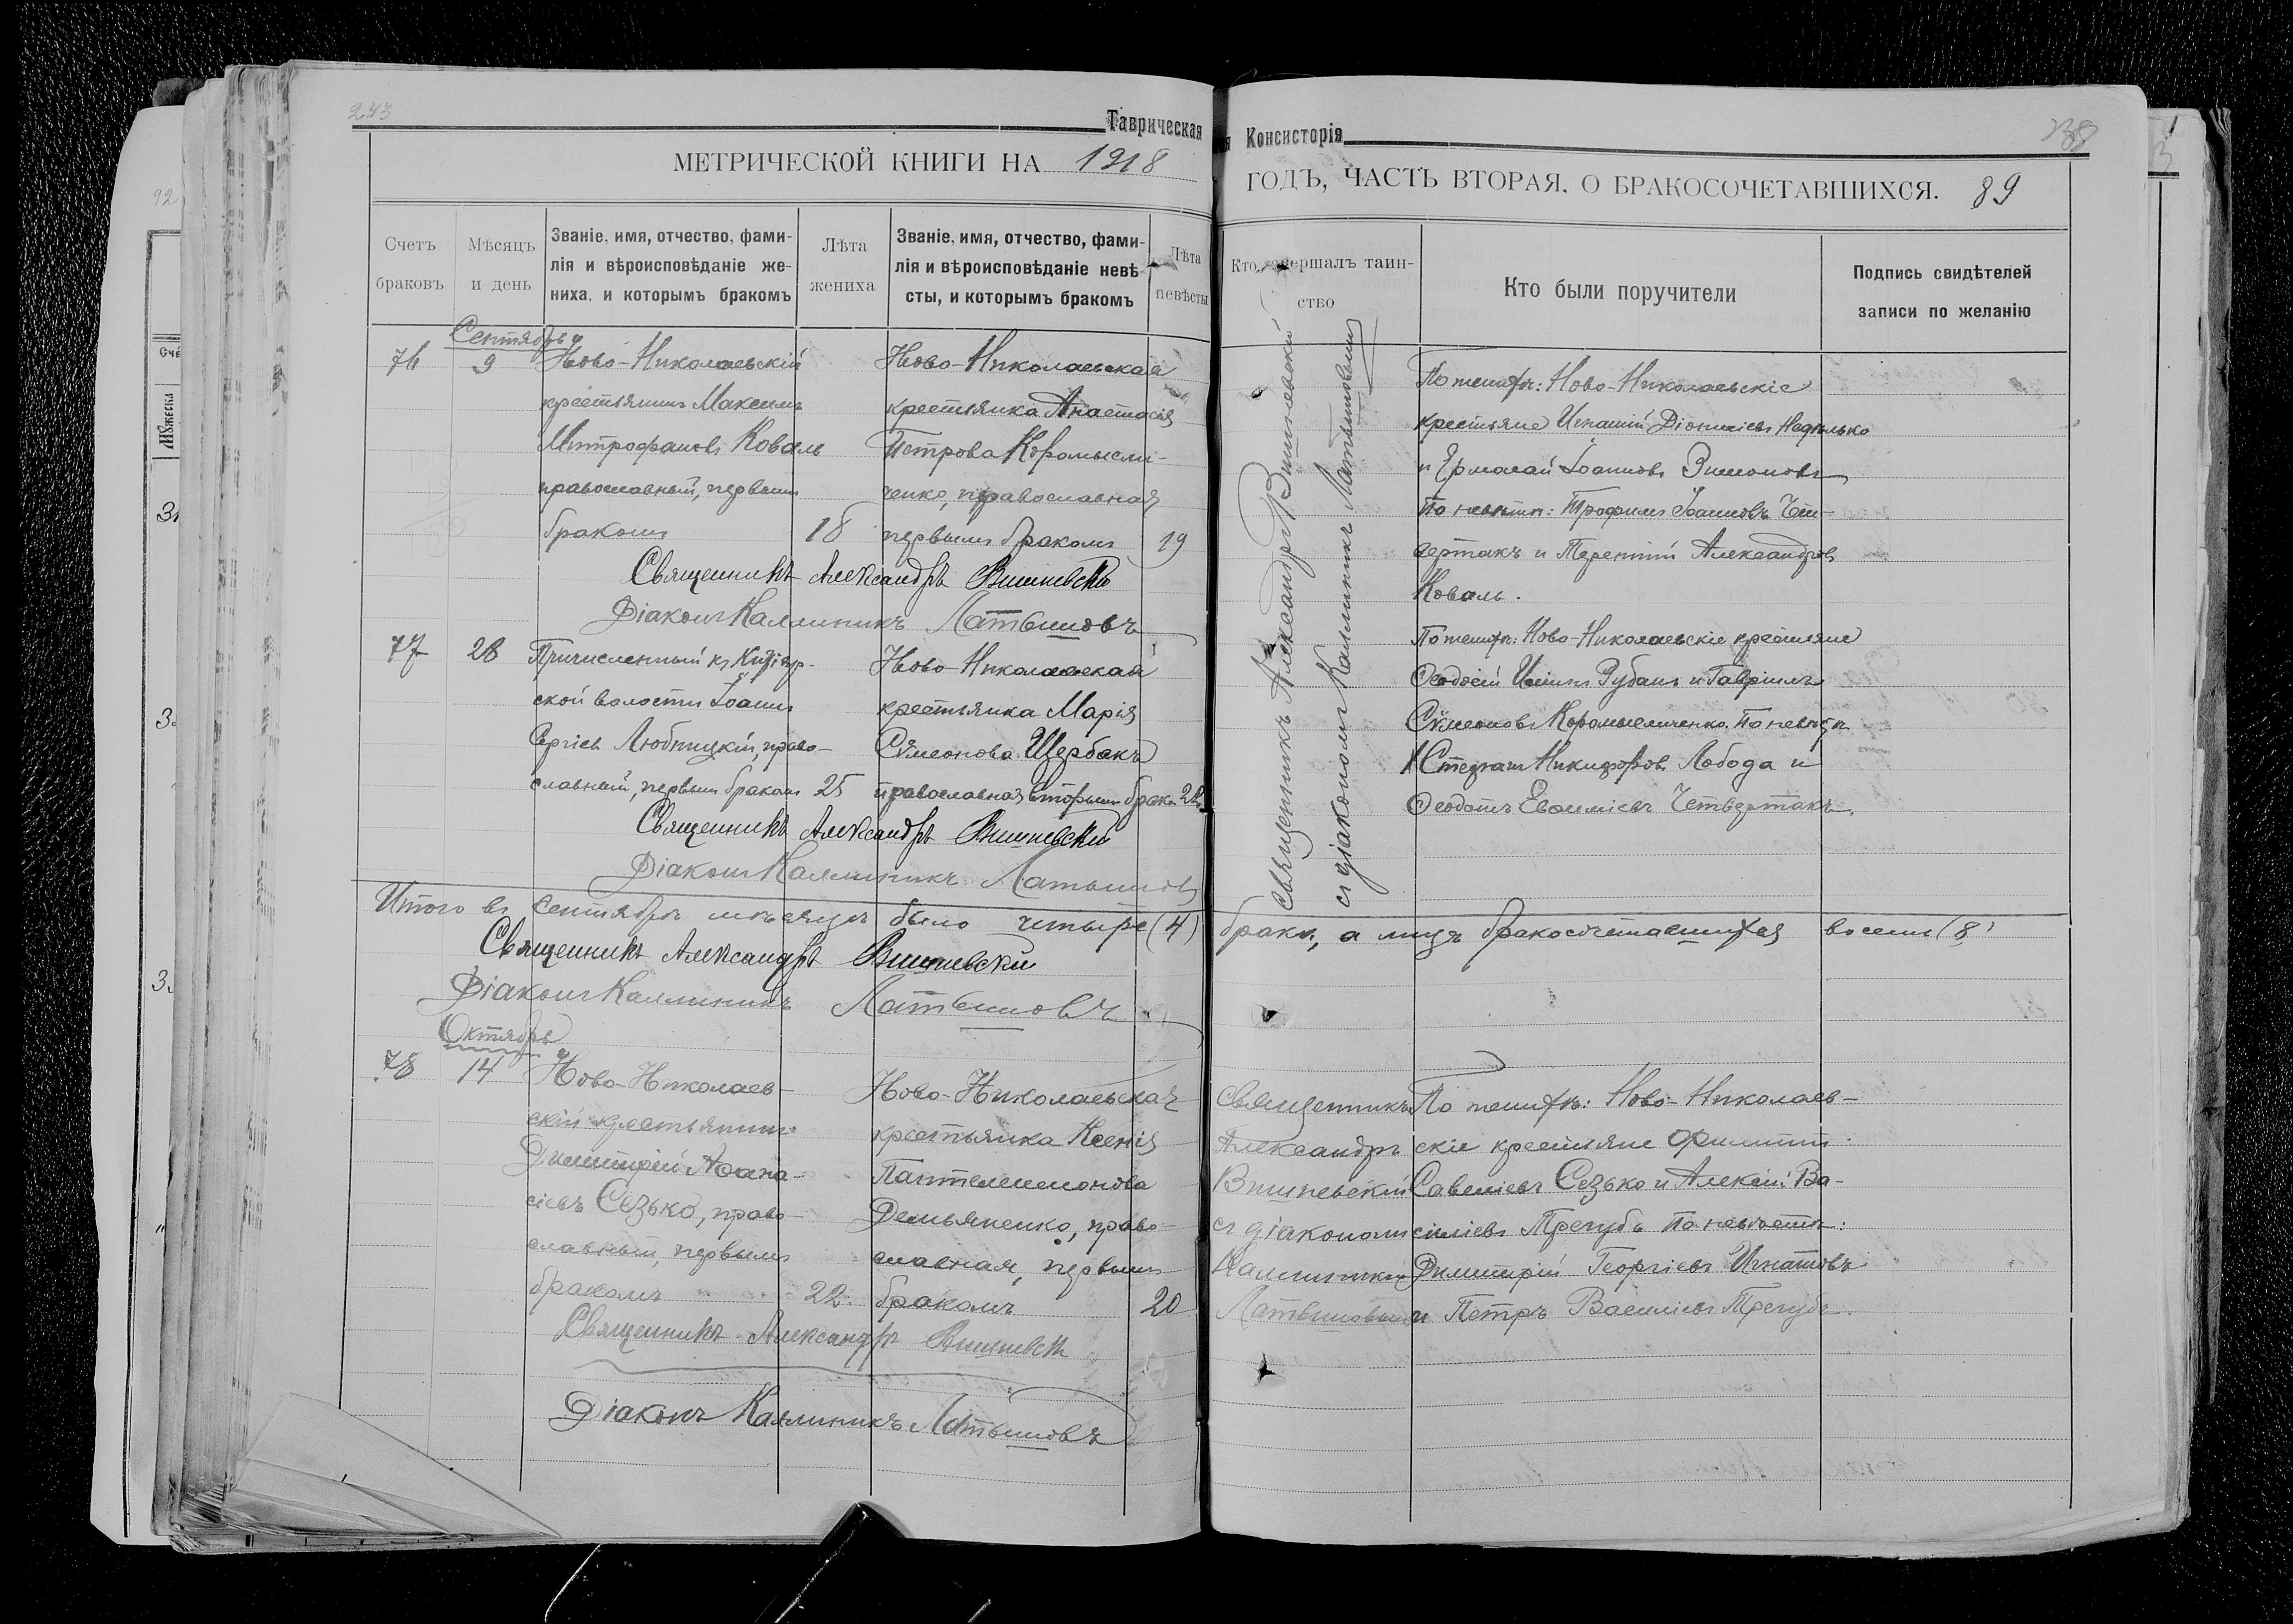 243
Таврическая Консисторія
МЕТРИЧЕСКОЙ КНИГИ НА 1918 ГОДЪ, ЧАСТЬ ВТОРАЯ, О БРАКОСОЧЕТАВШИХСЯ. 89
Счетъ браковъ
Мѣсяцъ и день
Званіе, имя, отчество, фами-
лія и вѣроисповѣданіе же-
ниха, и которымъ бракомъ
Лѣта жениха
Званіе, имя, отчество, фами-
лія и вѣроисповѣданіе невѣ
сты, и которымъ бракомъ
Лѣта невѣсты
Кто совершалъ таин-
ство
Кто были поручители
Подпись свидѣтелей
записи по желанію
Сентябрь
76
9
Ново-Николаевскій
крестьянинъ Максимъ
Митрофановъ Коваль
православный, первымъ
бракомъ
18
Ново-Николаевская
крестьянка Анастасія
Петрова Коромысли-
ченко, православная
первымъ бракомъ
19
Священникъ Александръ Вишневскій
съ діакономъ Каллиникъ Латышовымъ
По женихѣ: Ново-Николаевскіе
крестьяне Игнатій Діонисіевъ Недѣлько
и Ермолай Іоанновъ Зимоновъ
По невѣстѣ: Трофимъ Іоанновъ Чет-
вертакъ и Терентій Александровъ
Коваль.
Священникъ Александръ Вишневскій
Діаконъ Каллиникъ Латышовъ
77
28
Причисленный къ
ской волости Іоаннъ
Сергіевъ Любицкій, право-
славный, первымъ бракомъ
25
Ново-Николаевская
крестьянка Марія
Сѵмеонова Щербакъ
православная вторымъ брак.
По женихѣ: Ново-Николаевскіе крестьяне
Ѳеодосій Рубанъ и Гавріилъ
Сѵмеоновъ Коромысличенко. По невѣстѣ
Стефанъ Никифоровъ Лобода и
Ѳеодотъ Евѳиміевъ Четвертакъ.
Священникъ Александръ Вишневскій
Діаконъ Каллиникъ Латышовъ
Итого въ Сентябрѣ мѣсяцѣ было четыре (4) брака, а лицъ бракосочетавшихся восемь (8)
Священникъ Александръ Вишневскій
Діаконъ Каллиникъ Латышовъ
Октябрь
78
14
Ново-Николаев-
скій крестьянинъ
Димитрій Аѳана-
сіевъ Сезько, право-
славный, первымъ
бракомъ
22.
Ново-Николаевская
крестьянка Ксенія
Пантелеимонова
Демьяненко, право-
славная, первымъ
бракомъ
20
Священникъ
Александръ
Вишневскій
съ діакономъ
Каллиникъ
Латышовымъ
По женихѣ: Ново-Николаев-
скіе крестьяне Филиппъ
Савеліевъ Сезько и Алексій Ва-
силіевъ Трегубъ По невѣстѣ:
Димитрій Георгіевъ Игнатовъ
и Петръ Василіевъ Трегубъ.
Священникъ Александръ Вишневскій
Діаконъ Каллиникъ Латышовъ